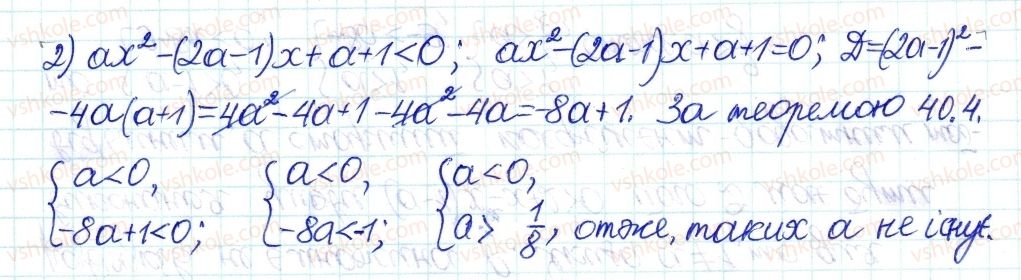 2) ax² - (2a-1)x + a + 1 < 0; ax² - (2a-1)x + a + 1 = 0; D = (2a-1)² -
- 4a(a+1) = 4a² - 4a + 1 - 4a² - 4a = -8a + 1. За теоремою 40.4.
{ a < 0, { a < 0, { a < 0,
{ -8a + 1 < 0; { -8a < -1; { a > 1/8, отже, таких a не існує.